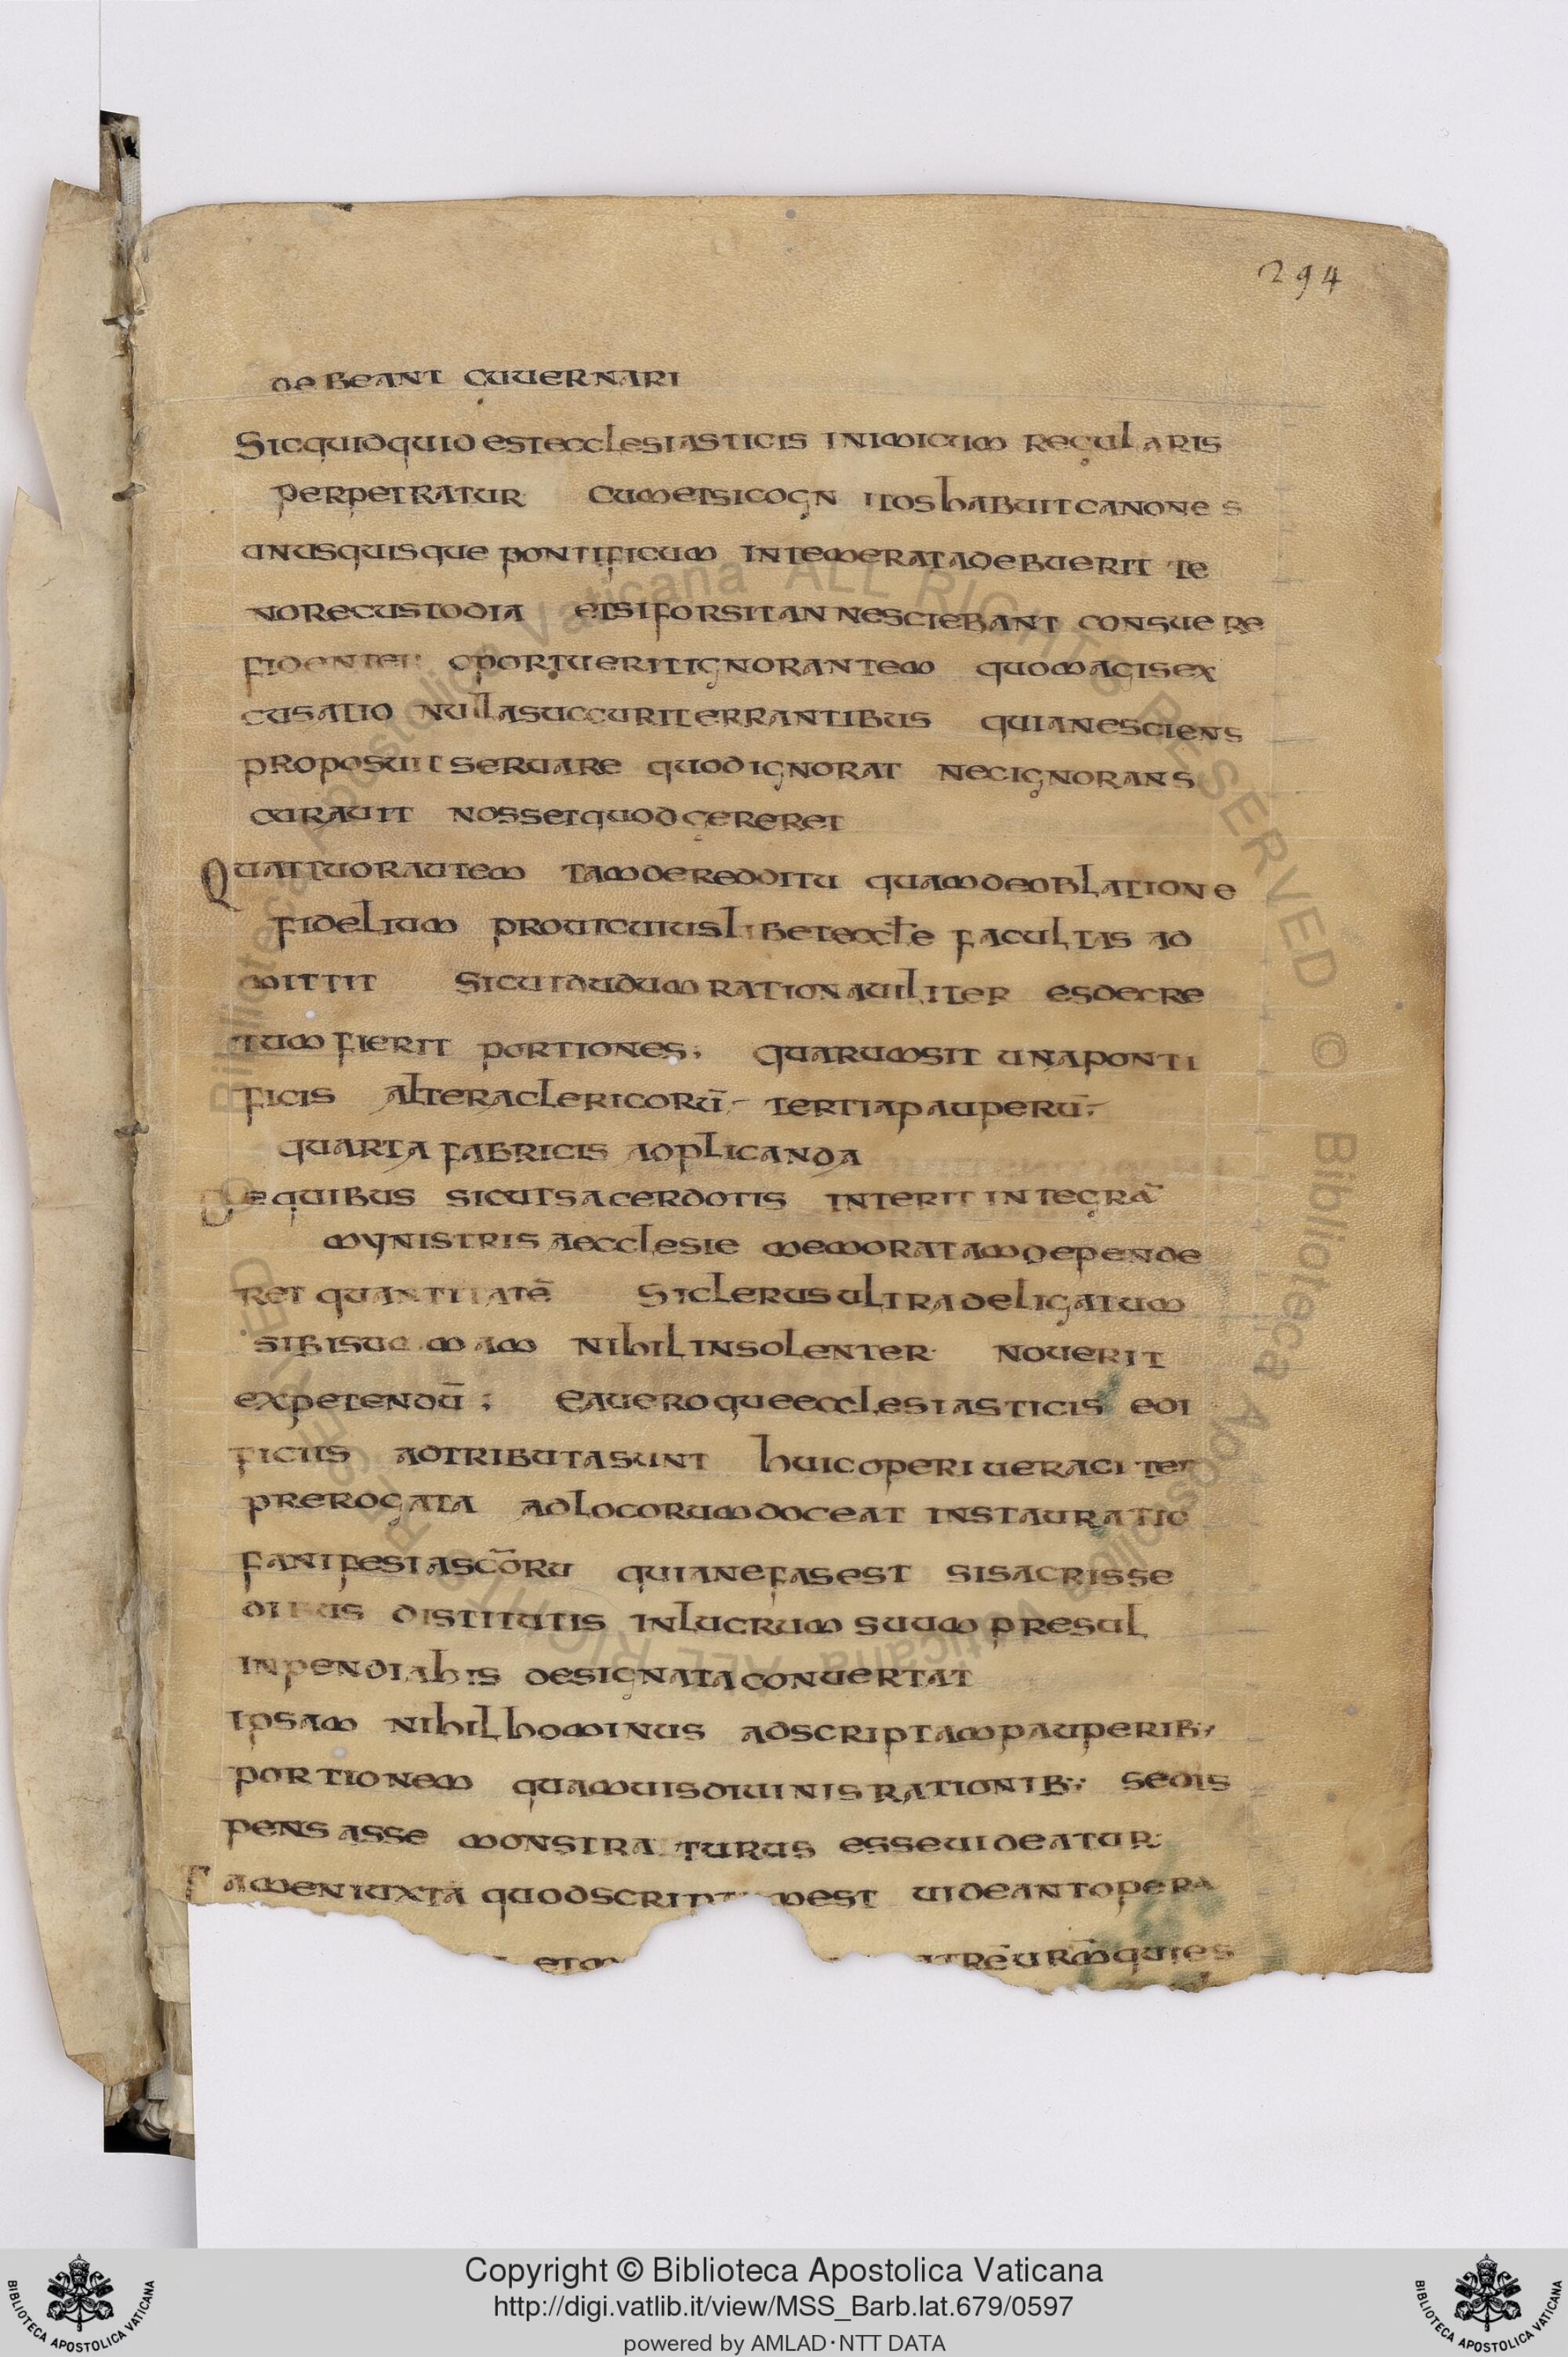 294
debeant guuernari
Sicquidquid estecclesiasticis inimicum regularis
perpetratur cumetsicogn itoshabuitcanones
unusquisque pontificum intemeratadebuerit te
norecustodia etsiforsitan nesciebant consuere
fidenter oportueritignorantem quomagisex
cusatio nullasuccuriterrantibus quianesciens
proposuit seruare quodignorat necignorans
curauit nossetquodgereret
Quattuorautem tamdereddittu quamdeoblatione
fidelium prouicuiuslibetecclẽ facultas ad
mittit sicutdudumrationauiliter esdecre
tumfierit portiones; quarumsit unaponti
ficis alteraclericorũ; tertiapauperũ;
quarta fabricis adplicanda
De quibus sicutsacerdotis interit integrã
mynistris aecclesie memoratamdepende
ret quantitatẽ Siclerusultradeligatum
sibisu mam nihilinsolenter nouerit
expetendũ; Eaueroqueecclesiasticis edi
ficiis adtributasunt huicoperiueraciter
prerogata adlocorumdoceat instauratio
fanifestascõru quianefasest sisacrisse
dibus distitutis inlucrum suum presul
inpendiahis designataconuertat
ipsam nihilhominus adscriptampauperib;
portionem quamuisdiuinisrationib; sedis
pensasse monstra turus esseuideatur
Tameniuxta quodscriptumest uideantopera
etm trẽurm̃quies
Copyright © Biblioteca Apostolica Vaticana
http://digi.vatlib.it/view/MSS_Barb.lat.679/0597
powered by AMLAD·NTT DATA
BIBLIOTECA APOSTOLICA VATICANA
BIBLIOTECA APOSTOLICA VATICANA